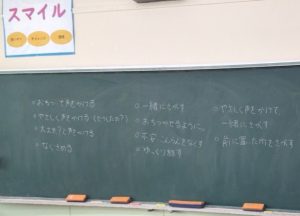 スマイル
○おちついて声をかける
○やさしく声をかける(どうしたの?)
○大丈夫?と声をかける
○なぐさめる
○一緒にさがす
○おちつかせるように、
○不安 なくす
○ゆっくり話す
○やさしく声をかけて
一緒にさがす
○前に置いた所をさがす